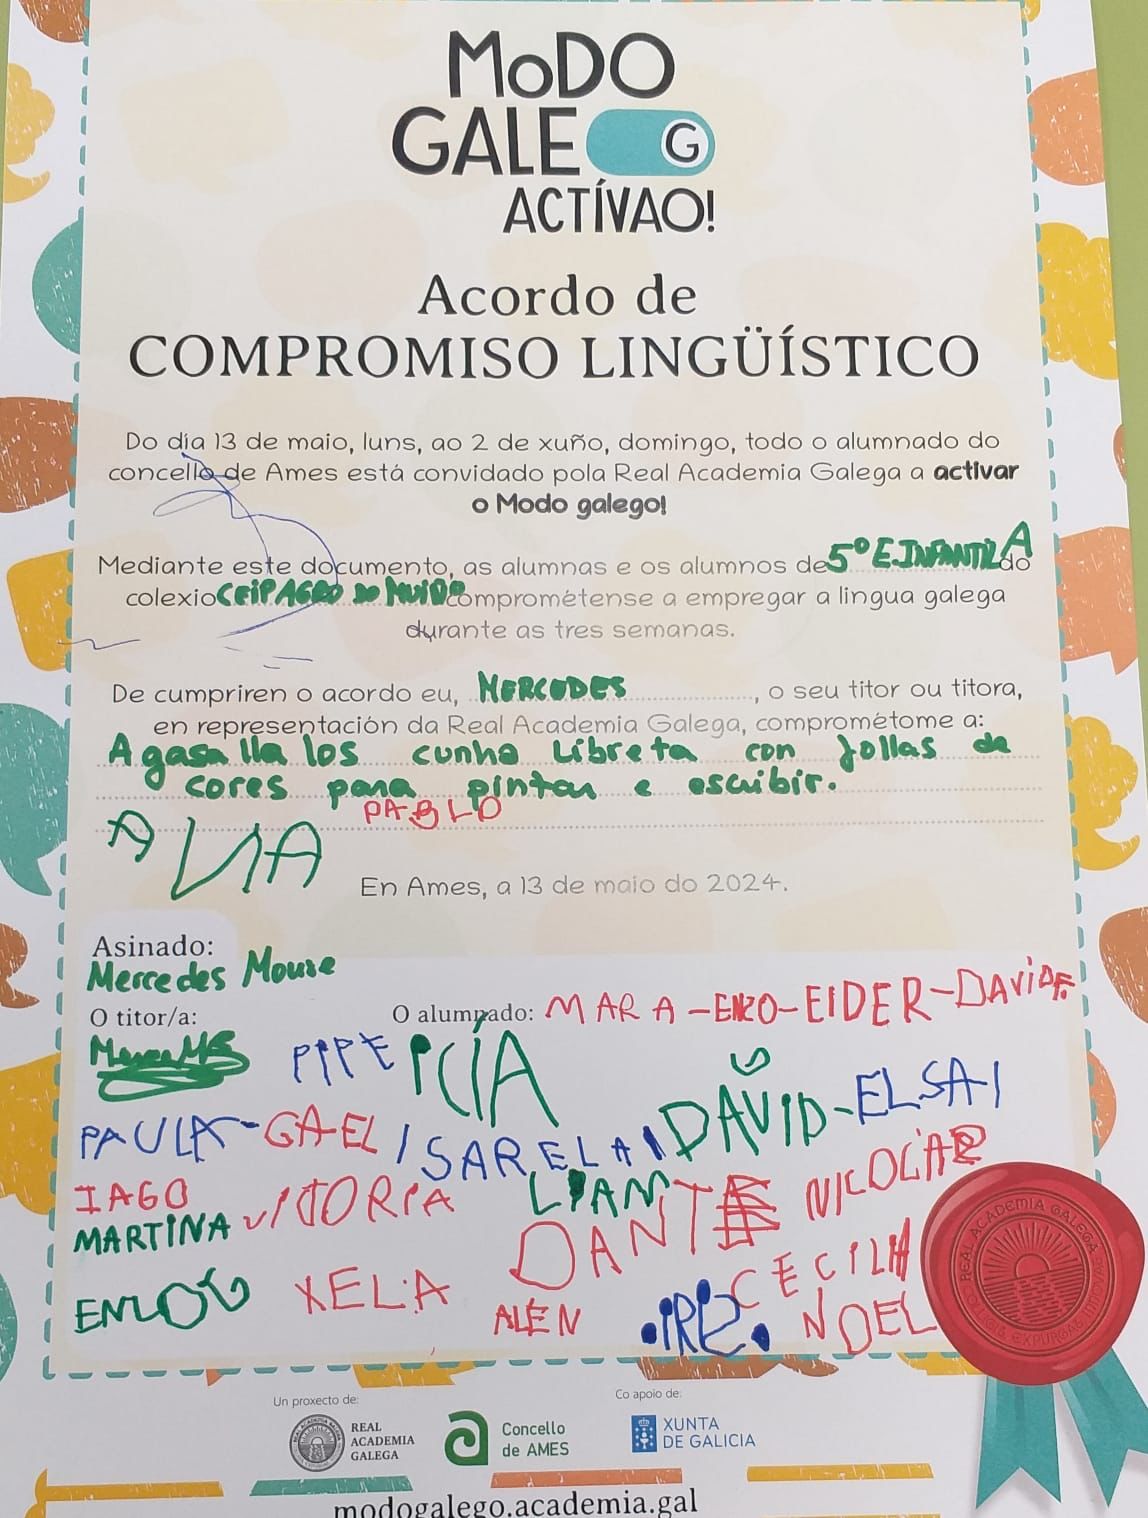 MODO
GALEG
ACTÍVAO!
Acordo de
COMPROMISO LINGÜÍSTICO
Do día 13 de maio, luns, ao 2 de xuño, domingo, todo o alumnado do
concello de Ames está convidado pola Real Academia Galega a activar
o Modo galego!
Mediante este documento, as alumnas e os alumnos de 5º E.INFANTIL A do
colexio CEIP AGRO DO MUIÑO comprométense a empregar a lingua galega
durante as tres semanas.
De cumpriren o acordo eu, MERCEDES, o seu titor ou titora,
en representación da Real Academia Galega, comprométome a:
Agasallalos cunha libreta con follas de
cores para pintar e escribir.
PABLO
En Ames, a 13 de maio do 2024.
Asinado:
Mercedes Mouse
O titor/a:
O alumnado: MARA-ENZO-EIDER-DAVID F.
PIPE
PAULA-GAEL/SARELA DAVID-ELSA
IAGO VITORIA LIAM DANTE NICOLAS
MARTINA
XELA ALEN CECILIA
NOEL
REAL ACADEMIA GALEGA
Un proxecto de:
Co apoio de:
REAL
ACADEMIA
GALEGA
Concello
de AMES
XUNTA
DE GALICIA
modogalego.academia.gal